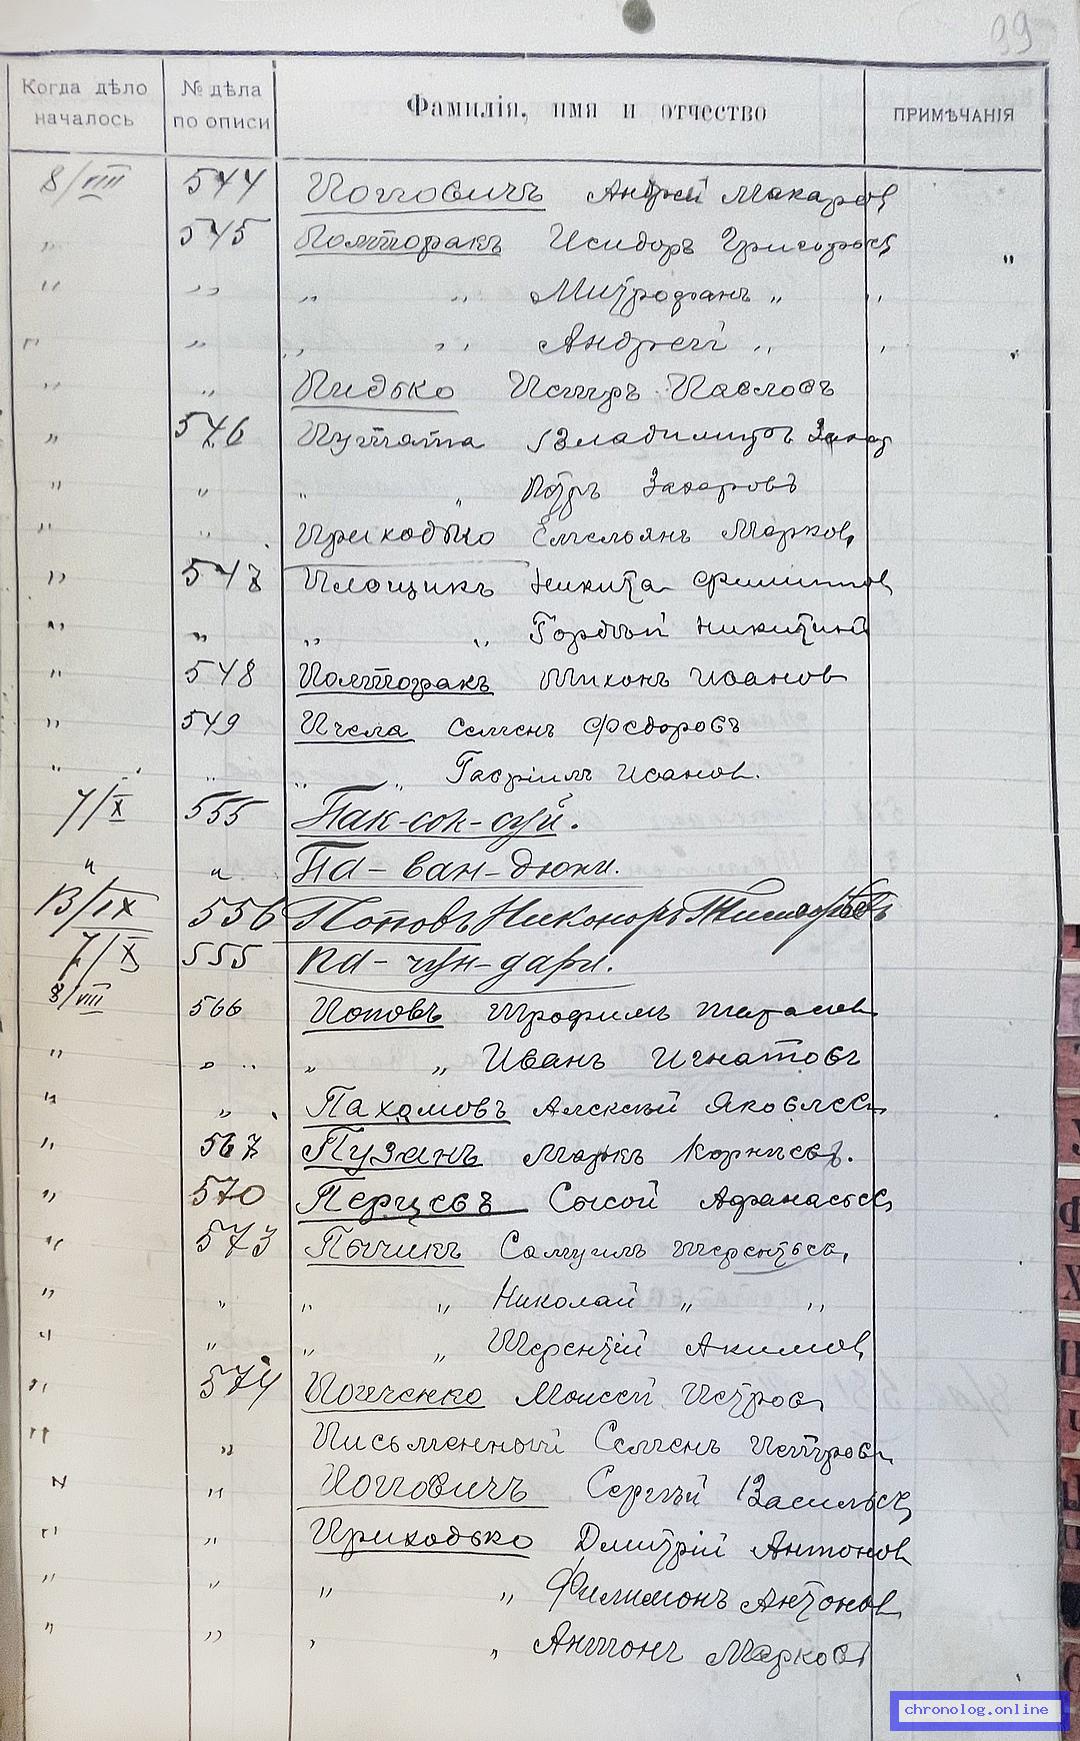 99
Когда дѣло началось № дѣла по описи Фамилія, имя и отчество ПРИМѢЧАНІЯ
8/VIII 544 Андрей Макаров
" 545 Полторакъ Исидоръ Григорьев "
" " " " Митрофанъ " "
" " " " Андрей " "
" " Пидько Петръ Павловъ
" 546 Пустота Владимиръ Захар
" " " " Петръ Захаровъ
" " Приходько Емельянъ Марков
" 547 Площикъ Никита Филиппов
" " " " Гордѣй Никитин
" 548 Полторакъ Тихонъ Иванов
" 549 Пчела Семенъ Федоровъ
" " " " Гавріилъ Иванов.
7/X 555 Пак-сок-суй.
" " Па-ван-дюки.
13/IX 556 Поповъ Никоноръ
7/X 555 Па-чун-дари.
8/VIII 566 Поповъ Трофимъ Тарасов
" " " " Иванъ Игнатовъ
" " Пахомовъ Алексѣй Яковлев
" 567 Пузанъ Маркъ Корнѣев.
" 570 Перцевъ Сысой Афанасьев
" 573 Пычикъ Самуилъ Терентьев,
" " " " Николай " "
" " " " Терентій Акимов,
" 574 Моисей Петров
" " Письменный Семенъ Петров
" " Сергѣй Васильев
" " Приходько Дмитрій Антонов
" " " " Филимонъ Антонов
" " " " Антонъ Марков
chronolog.online